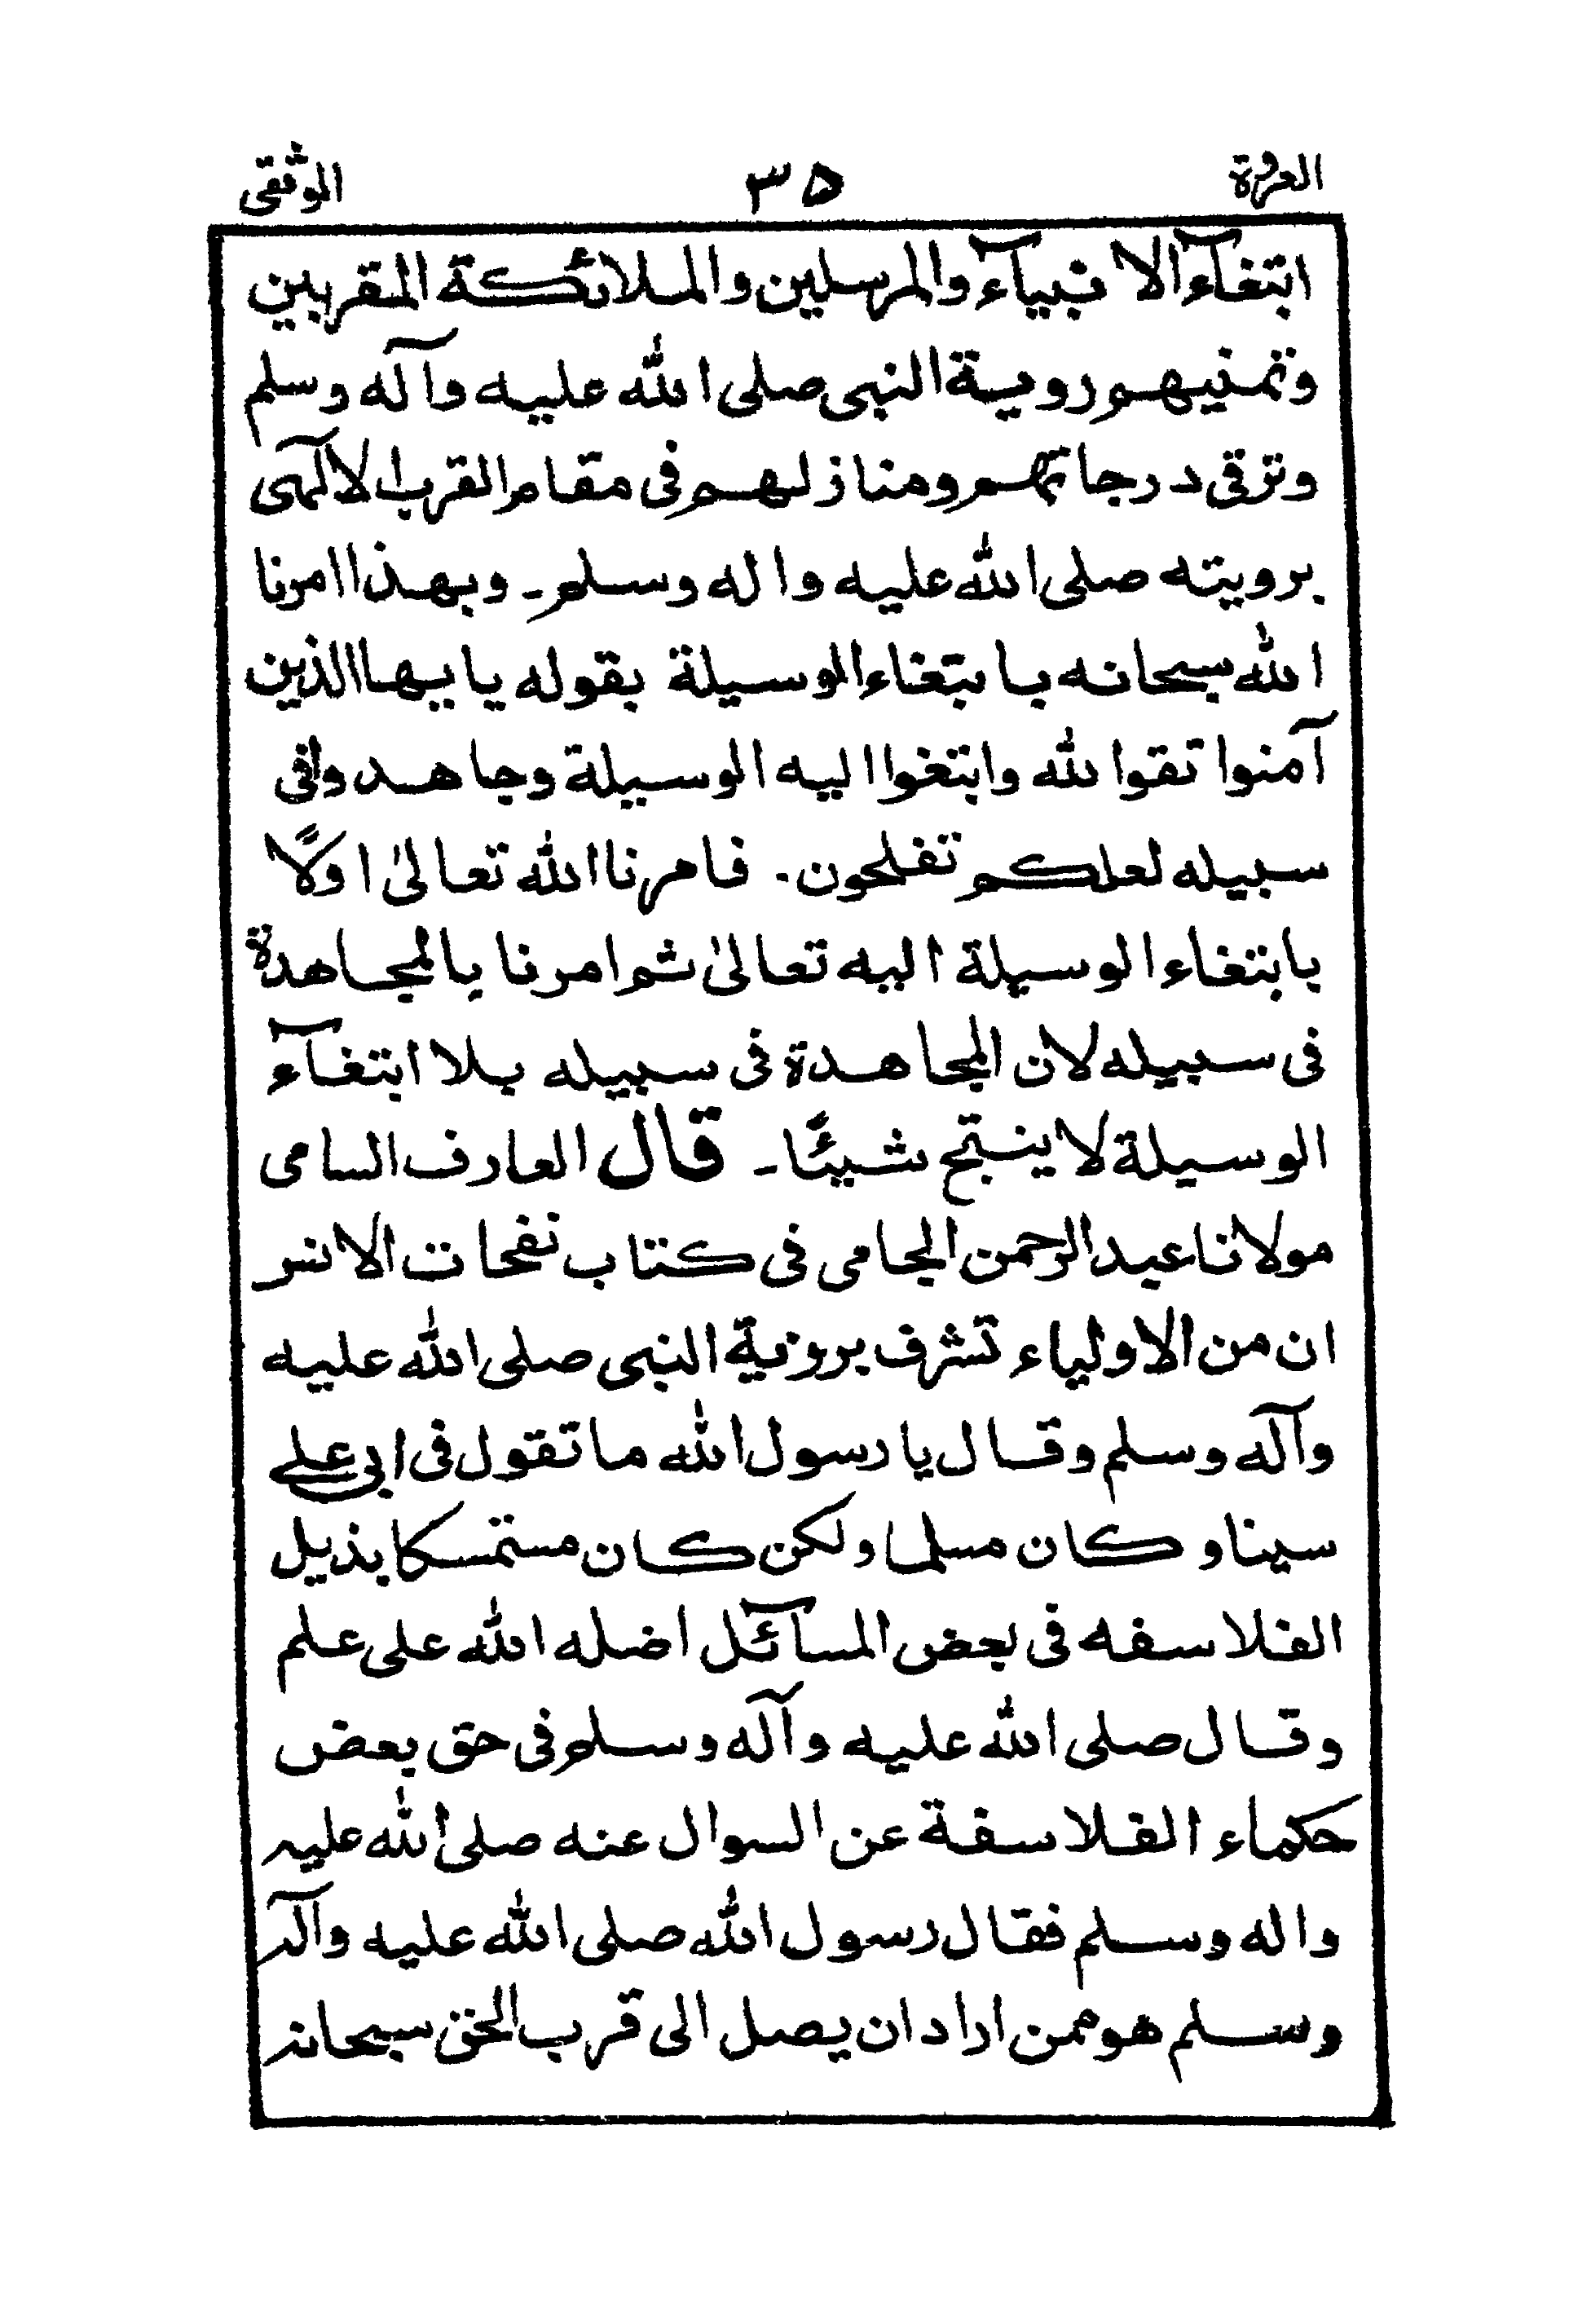 العروة ٣٥ الوثقى
ابتغآء الانبيآء والمرسلين والملائكة المقربين
وتمنيهم روية النبى صلى الله عليه وآله وسلم
وترقى درجاتهم ومنازلهم فى مقام القرب الالٓهى
برويته صلى الله عليه واله وسلم۔ وبهذا امرنا
الله سبحانه بابتغاء الوسيلة بقوله يايها الذين
آمنوا تقوا لله وابتغوا اليه الوسيلة وجاهدوا فى
سبيله لعلكم تفلحون. فامرنا الله تعالىٰ اوّلًا
بابتغاء الوسيلة اليه تعالىٰ ثم امرنا بالمجاهدة
فى سبيله لان المجاهدة فى سبيله بلا ابتغآء
الوسيلة لا ينتج شيئًا۔ قال العارف السامى
مولانا عبد الرحمن الجامى فى كتاب نفحات الانس
ان من الاولياء تشرف بروئية النبى صلى الله عليه
وآله وسلم وقال يا رسول الله ما تقول فى ابى على
سينا و كان مسلما ولكن كان مستمسكا بذيل
الفلاسفه فى بعض المسآئل اضله الله على علم
وقال صلى الله عليه وآله وسلم فى حق بعض
حكماء الفلاسفة عن السوال عنه صلى الله عليه
واله وسلم فقال رسول الله صلى الله عليه وآله
وسلم هو ممن اراد ان يصل الى قرب الحق سبحانه